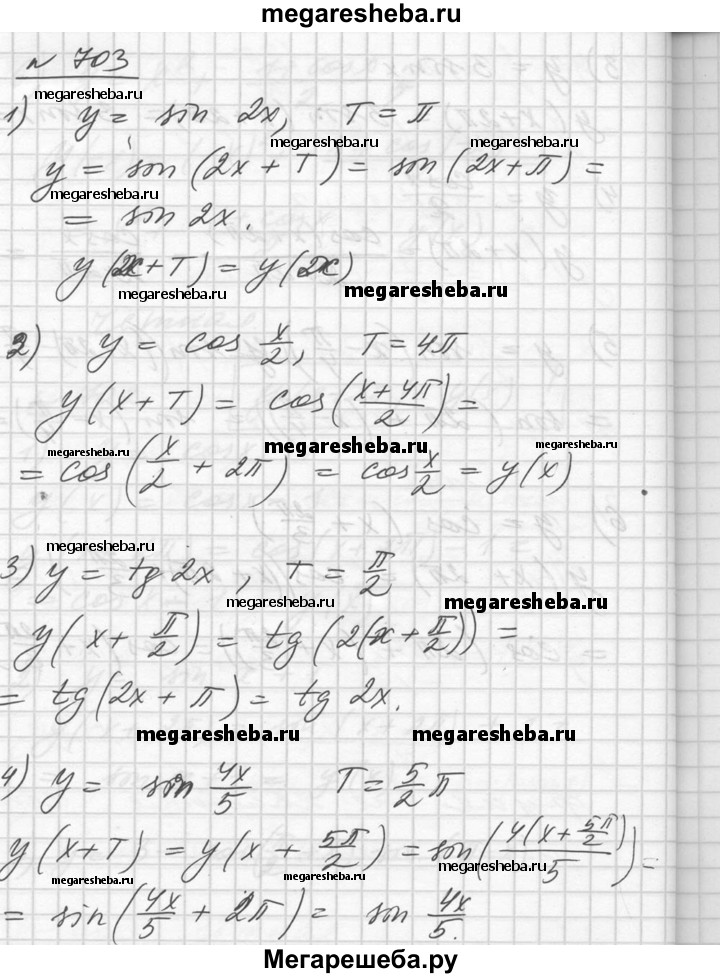 megaresheba.ru
№ 703
megaresheba.ru
1) y = sin 2x, T = π
megaresheba.ru megaresheba.ru
y = sin (2x + T) = sin (2x + π) =
megaresheba.ru
= sin 2x.
y (2x + T) = y (2x)
megaresheba.ru megaresheba.ru
2) y = cos x/2, T = 4π
y (x + T) = cos ((x + 4π)/2) =
megaresheba.ru megaresheba.ru megaresheba.ru
= cos (x/2 + 2π) = cos x/2 = y (x)
megaresheba.ru
3) y = tg 2x, T = π/2
megaresheba.ru megaresheba.ru
y (x + π/2) = tg (2(x + π/2)) =
= tg (2x + π) = tg 2x.
megaresheba.ru megaresheba.ru
4) y = sin 4x/5 T = 5/2 π
y (x + T) = y (x + 5π/2) = sin (4(x + 5π/2)/5) =
megaresheba.ru megaresheba.ru megaresheba.ru
= sin (4x/5 + 2π) = sin 4x/5.
Мегарешеба.ру